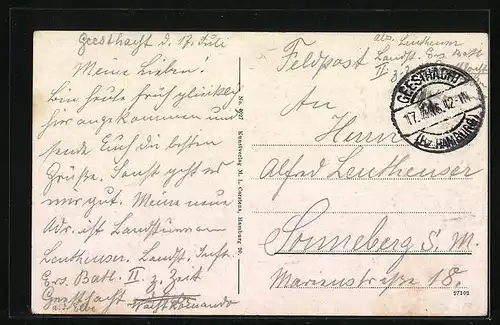 Geesthacht d. 17. Juli
Meine Lieben!
Bin heute früh glücklich
hier angekommen und
sende Euch die besten
Grüße. Sonst geht es
mir gut. Meine neue
Adr. ist Landsturmm.
Leuthenser. Landst. Inft.
Ers. Batl. II z. Zeit
Geesthacht
a. d. Elbe Wachtkomando
No. 4097 Kunstverlag M. L. Carstens, Hamburg
Abs. Leuthenser
Feldpost Landst. Ers. Batl.
II z. Zt.
GEESTHACHT
17. 16. 12-1N.
(Bz. HAMBURG)
An
Herrn
Alfred Leuthenser
Sonneberg S. M.
Marienstraße 18.